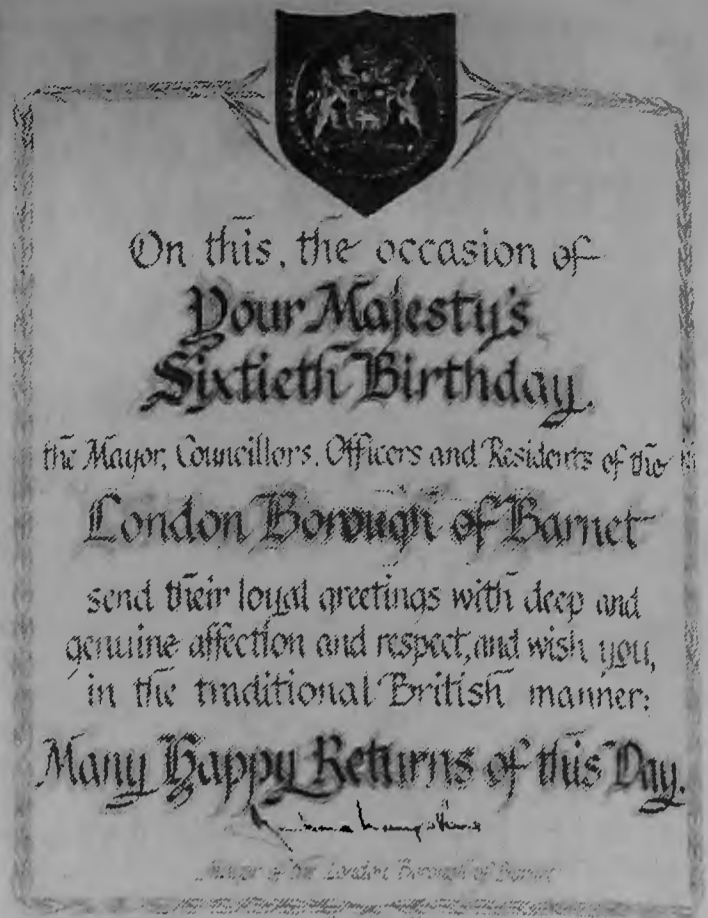 On this, the occasion of
Your Majesty's
Sixtieth Birthday,
the Mayor, Councillors, Officers and Residents of the
London Borough of Barnet
send their loyal greetings with deep and
genuine affection and respect, and wish you,
in the traditional British manner:
Many Happy Returns of this Day.
Mayor of the London Borough of Barnet